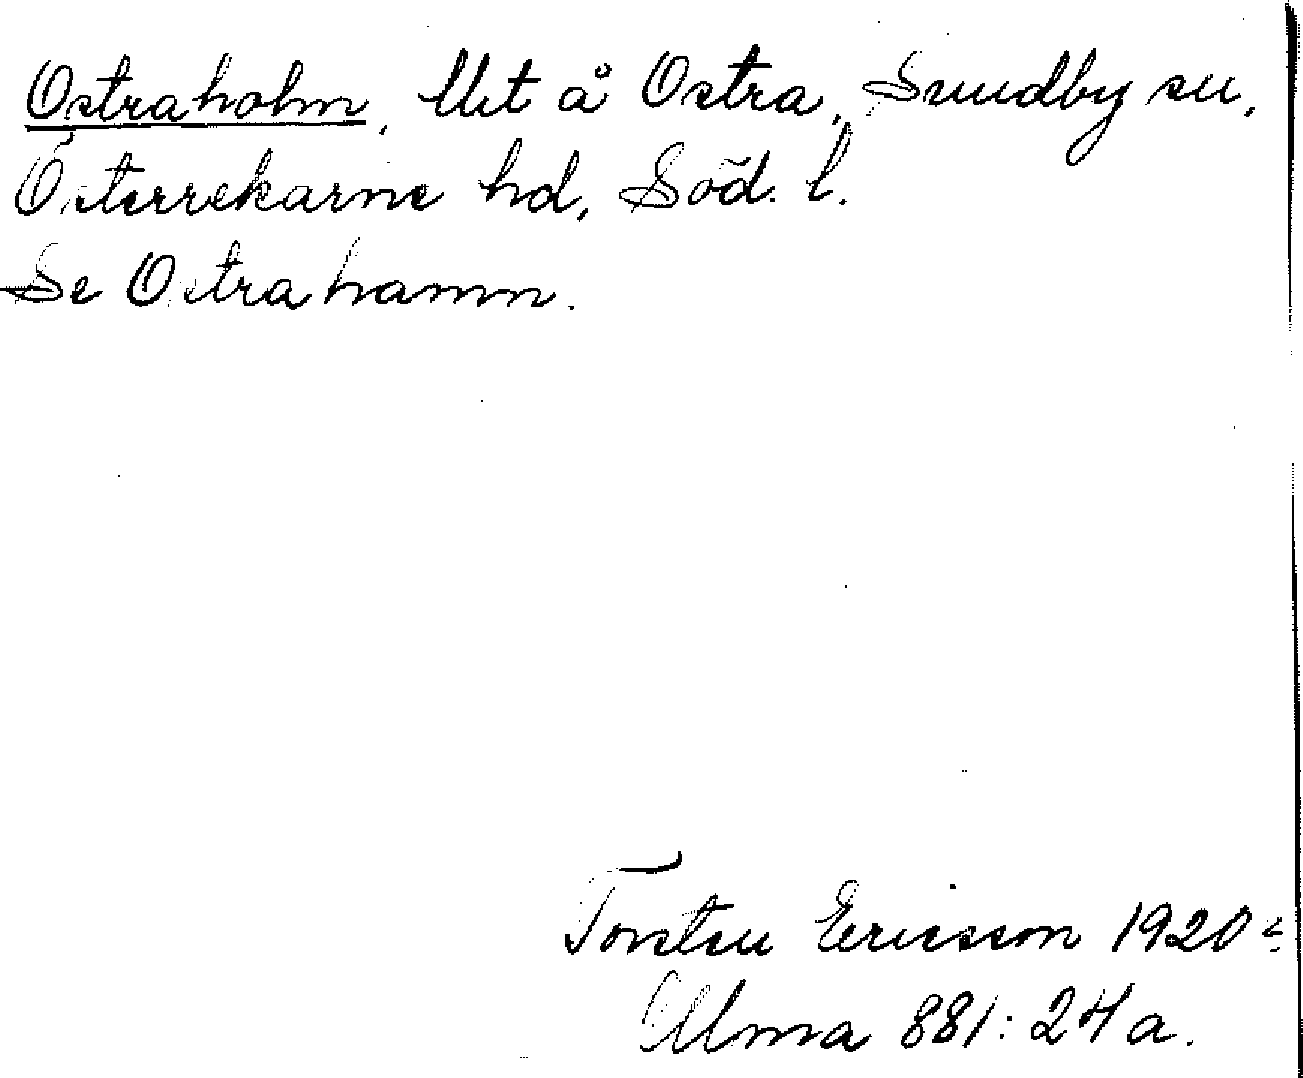 Ostraholm, Utt å Ostra, Sundby sn,
Österrekarne hd, Söd. l.
Se Ostrahamn.
Torsten Ericsson 1920
Ulma 881:24a.